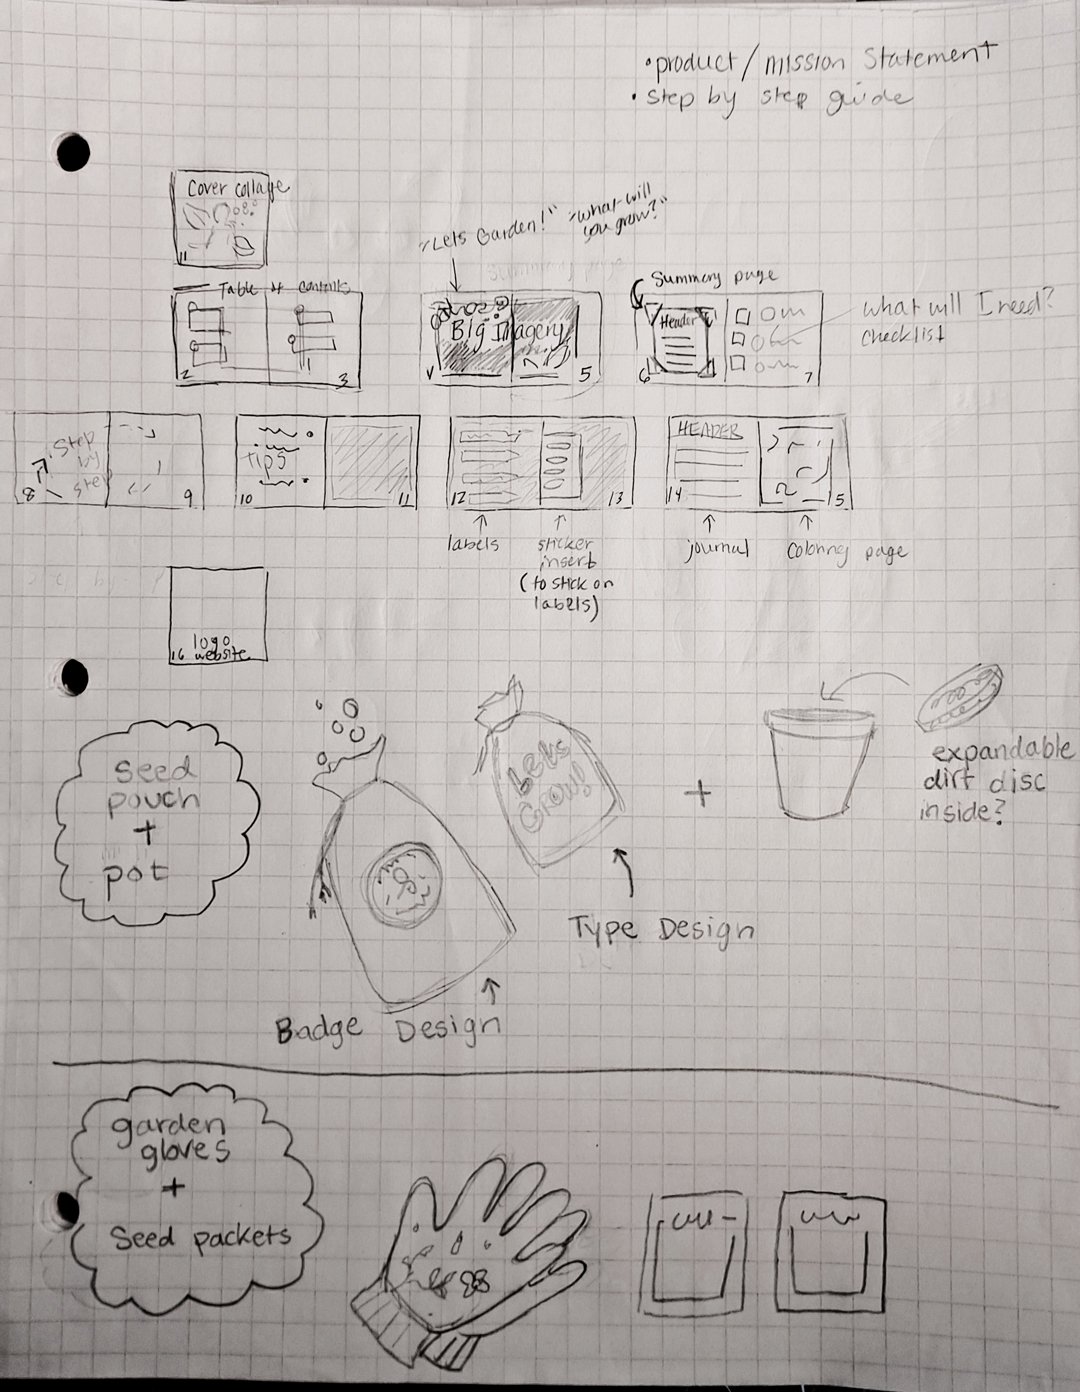 • product / mission Statement
• Step by step guide
Cover collage
"Lets Garden!"
"what will
you grow?"
Table of contents
2
3
Big Imagery
5
Summary page
Header
6
7
what will I need?
checklist
Step
by
step
8
9
tips
10
11
12
13
labels
sticker
insert
(to stick on
labels)
HEADER
14
15
journal
Coloring page
logo
16 website
Seed
pouch
+
pot
Lets
Grow!
+
expandable
dirt disc
inside?
Type Design
Badge Design
garden
gloves
+
Seed packets